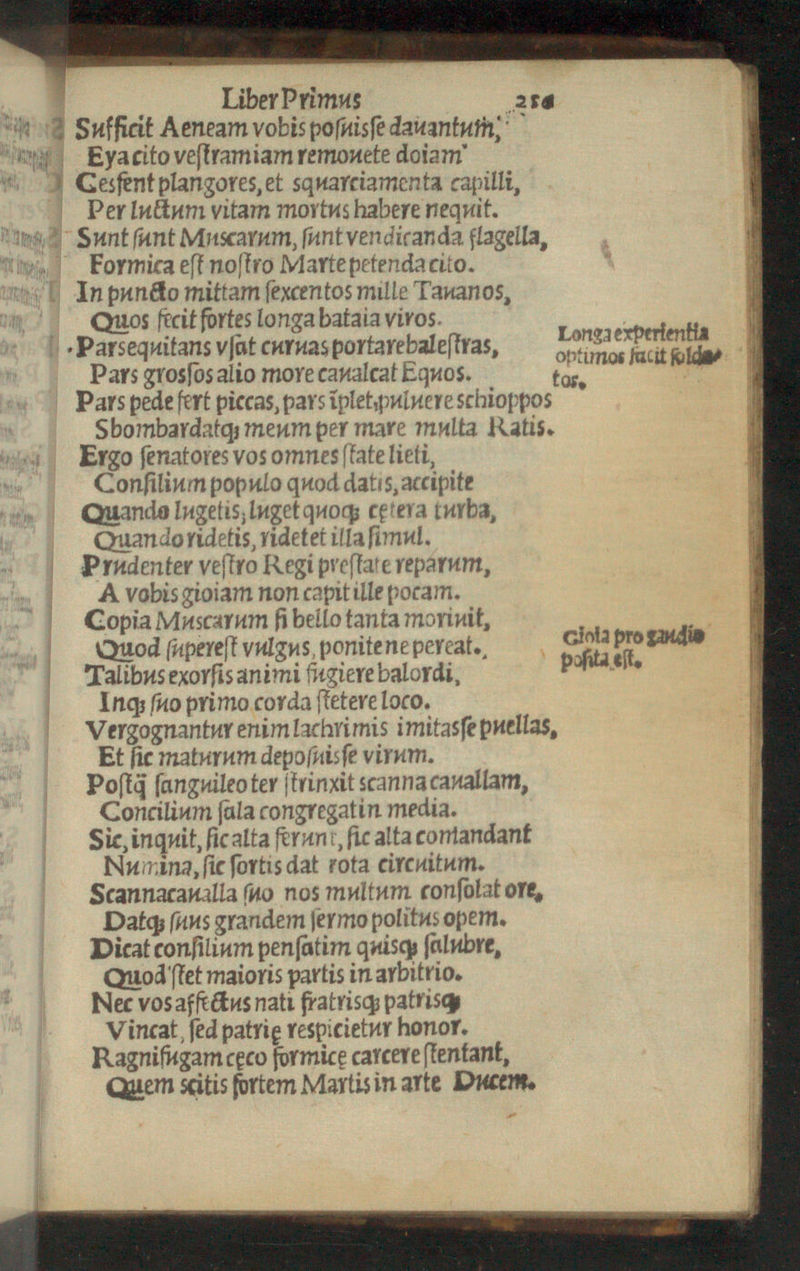 Liber Primus
Sufficit Aeneam vobis poſuisſe davantum,
Eya cito veſtram iam remouete doiam
Cesſent plangores, et squarciamenta capilli,
Per luctum vitam mortus habere nequit.
Sunt ſunt Muscarum, ſunt vendicanda flagella,
Formica eſt noſtro Marte petenda cito.
In puncto mittam ſexcentos mille Tauanos,
Quos fecit fortes longa bataia viros.
Pars equitans vſat curuas portare baleſtras,
Longa experientia
optimos facit ſolda
tos.
Pars grosſos alio more caualcat Equos.
Pars pede fert piccas, pars īplet, puluere schioppos
Sbombardatqꝫ meum per mare multa Ratis.
Ergo ſenatores vos omnes ſtate lieti,
Conſilium populo quod datis, accipite
Quando lugetis, luget quoqꝫ cętera turba,
Quando ridetis, ridet et illa ſimul.
Prudenter veſtro Regi preſtate reparum,
A vobis gioiam non capit ille pocam.
Copia Muscarum ſi bello tanta moriuit,
Quod ſupereſt vulgus, ponite ne pereat.
Gioia pro gaudio
poſita eſt.
Talibus exorſis animi fugiere balordi,
Inqꝫ ſuo primo corda ſtetere loco.
Vergognantur enim lachrimis imitasſe puellas,
Et ſic maturum depoſuisſe virum.
Poſtq̄ ſanguileo ter ſtrinxit scanna cauallam,
Concilium ſala congregat in media.
Sic, inquit, ſic alta ferunt, ſic alta comandant
Numina, ſic ſortis dat rota circuitum.
Scannacaualla ſuo nos multum conſolat ore,
Datqꝫ ſuus grandem ſermo politus opem.
Dicat conſilium penſatim quisqꝫ ſalubre,
Quod ſtet maioris partis in arbitrio.
Nec vos affectus nati fratrisqꝫ patrisqꝫ
Vincat, ſed patrię respicietur honor.
Ragnifugam cęco formicę carcere ſtentant,
Quem scitis fortem Martis in arte Ducem.